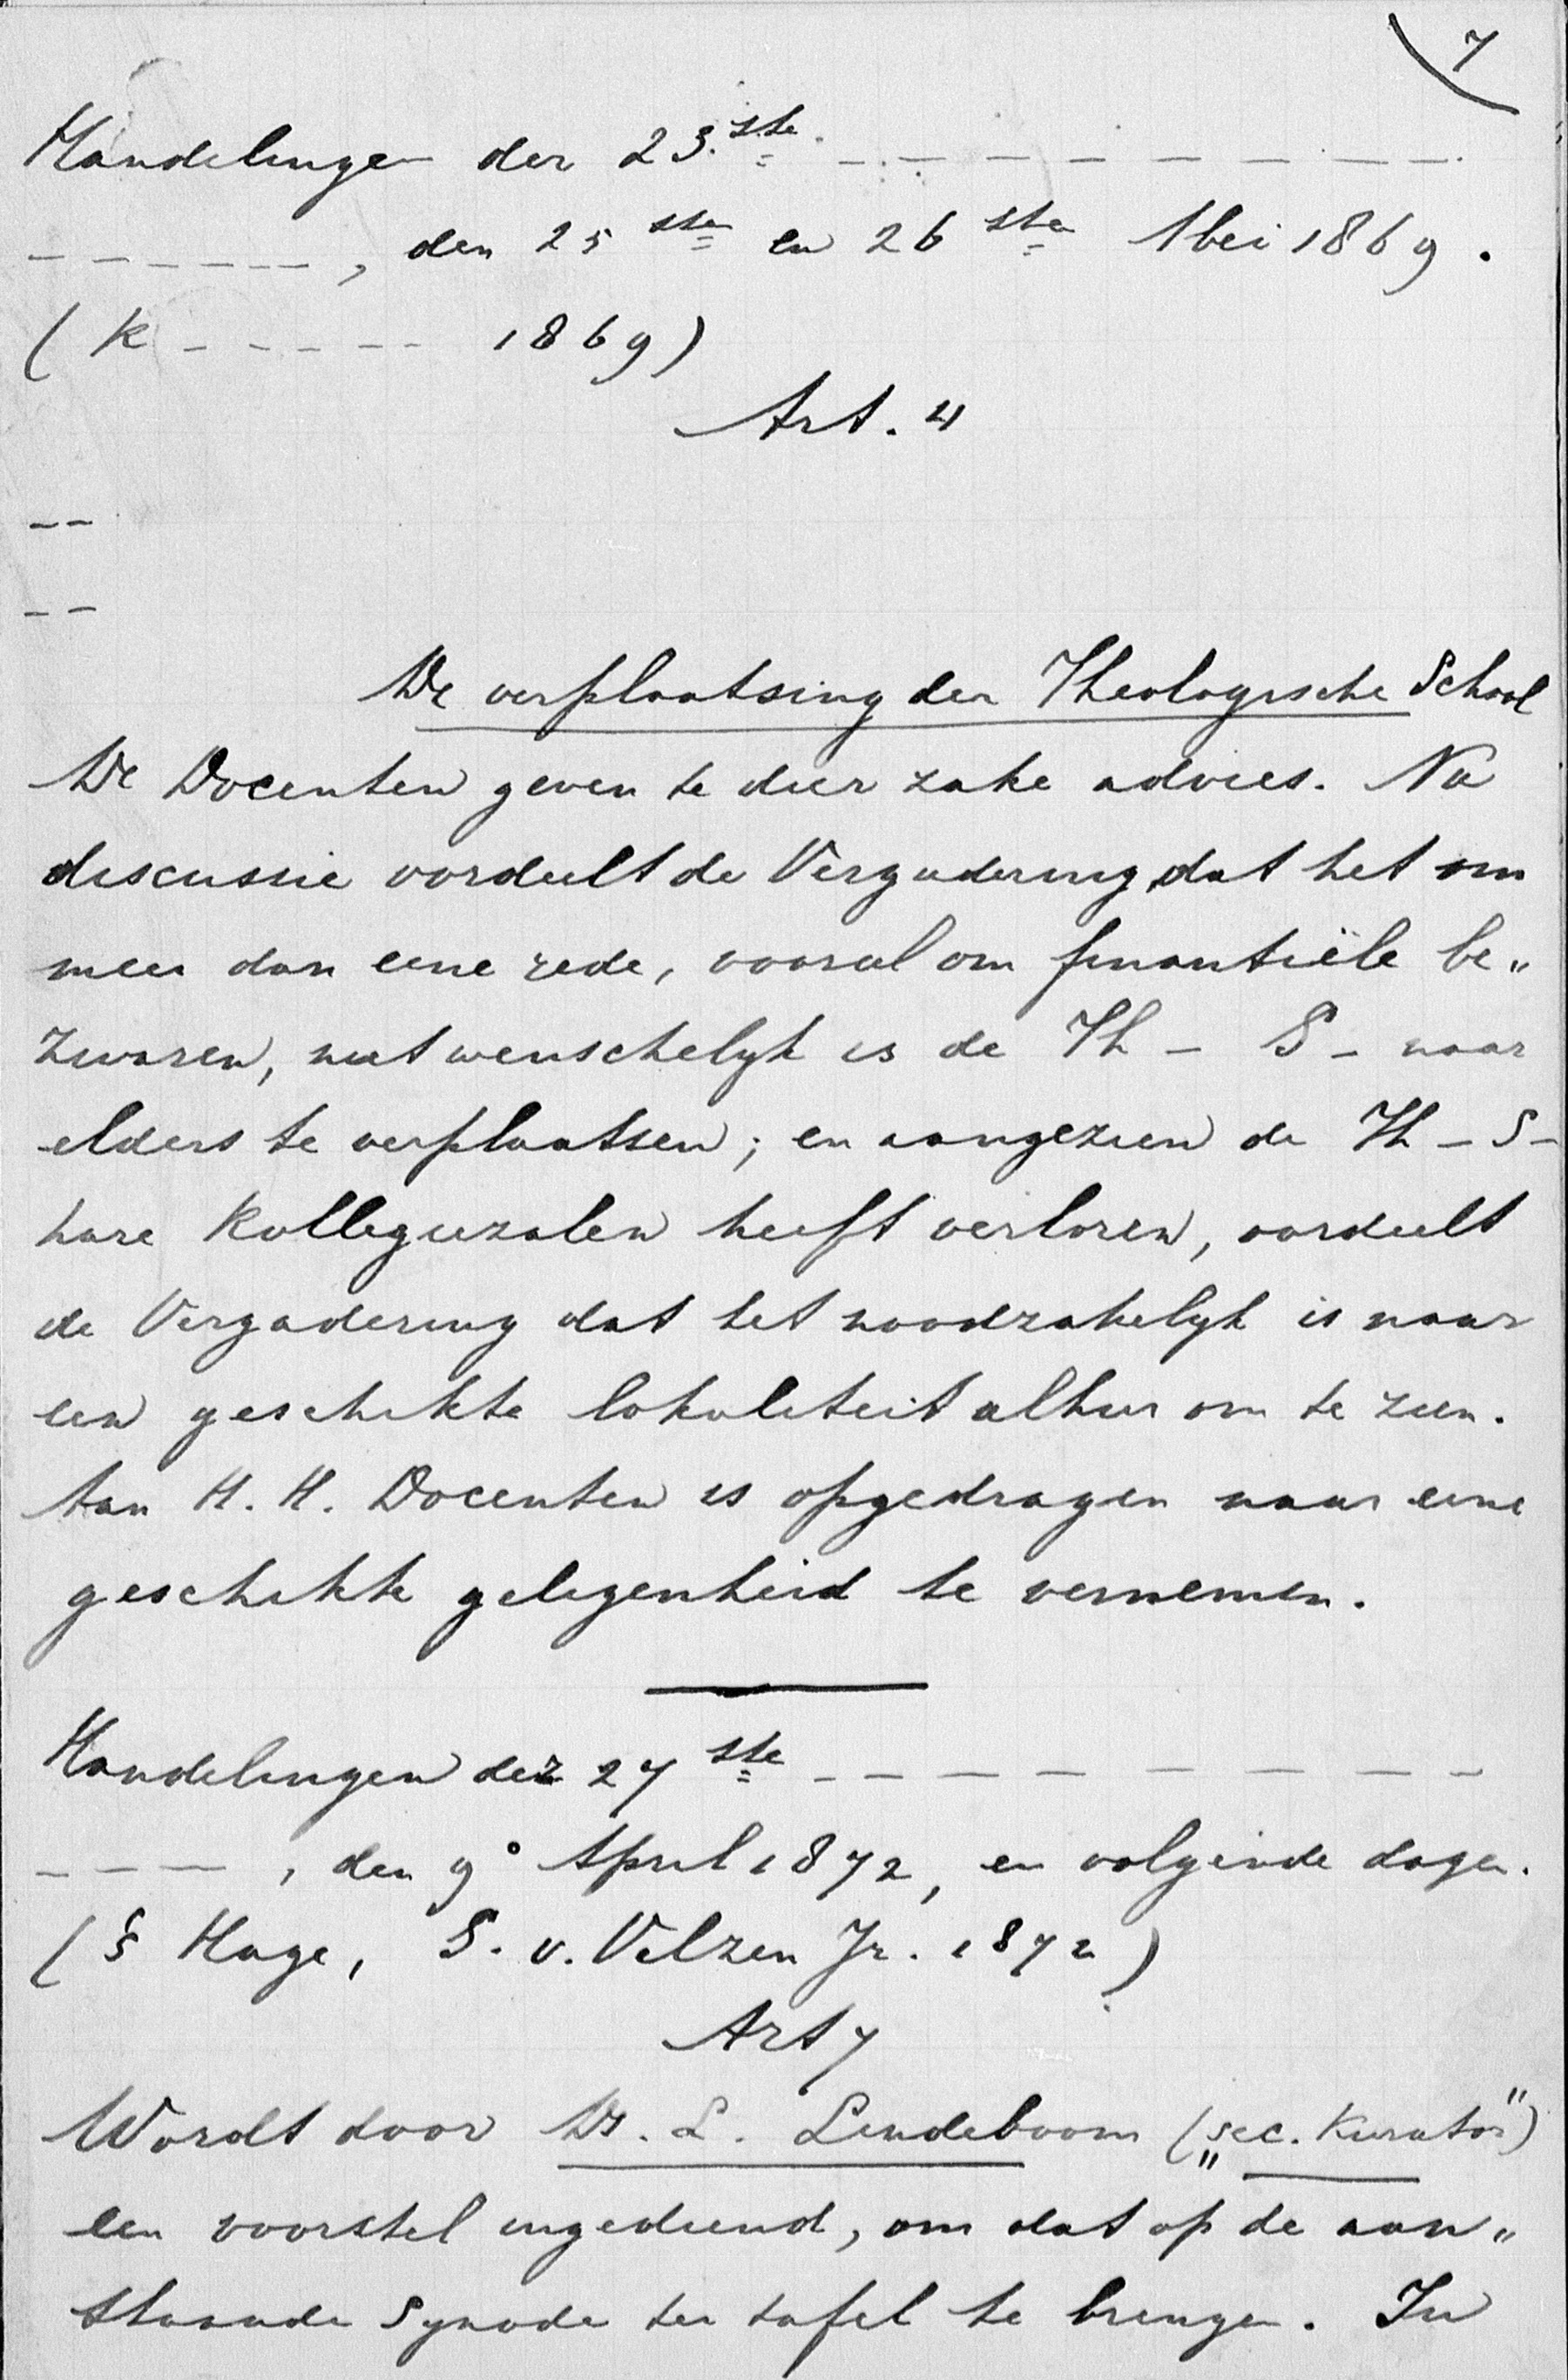 7
Handelingen der 23.ste - - - - - - - -
- - - - - - -, den 25 ste en 26 ste Mei 1869.
(K - - - - - - 1869)
Art. 4
- -
- -
De verplaatsing der Theologische School
De Docenten geven te dier zake advies. Na
discussie oordeelt de Vergadering, dat het om
meer dan eene rede, vooral om finantiële be„
zwaren, niet wenschelyk is de Th - S - naar
elders te verplaatsen; en aangezien de Th - S -
hare Kollegiezalen heeft verloren, oordeelt
de Vergadering dat het noodzakelyk is naar
een geschikte lokaliteit alhier om te zien.
Aan H. H. Docenten is opgedragen naar eene
geschikte gelegenheid te vernemen.
Handelingen der 27 ste - - - - - - - -
- - - -, den 9° April 1872, en volgende dagen.
(§ Hage, S. v. Velzen Jr. 1872)
Art 7
Wordt door Ds. L. Lindeboom („sec. Kurator")
een voorstel ingediend, om dat op de aan„
staande Synode ter tafel te brengen. In